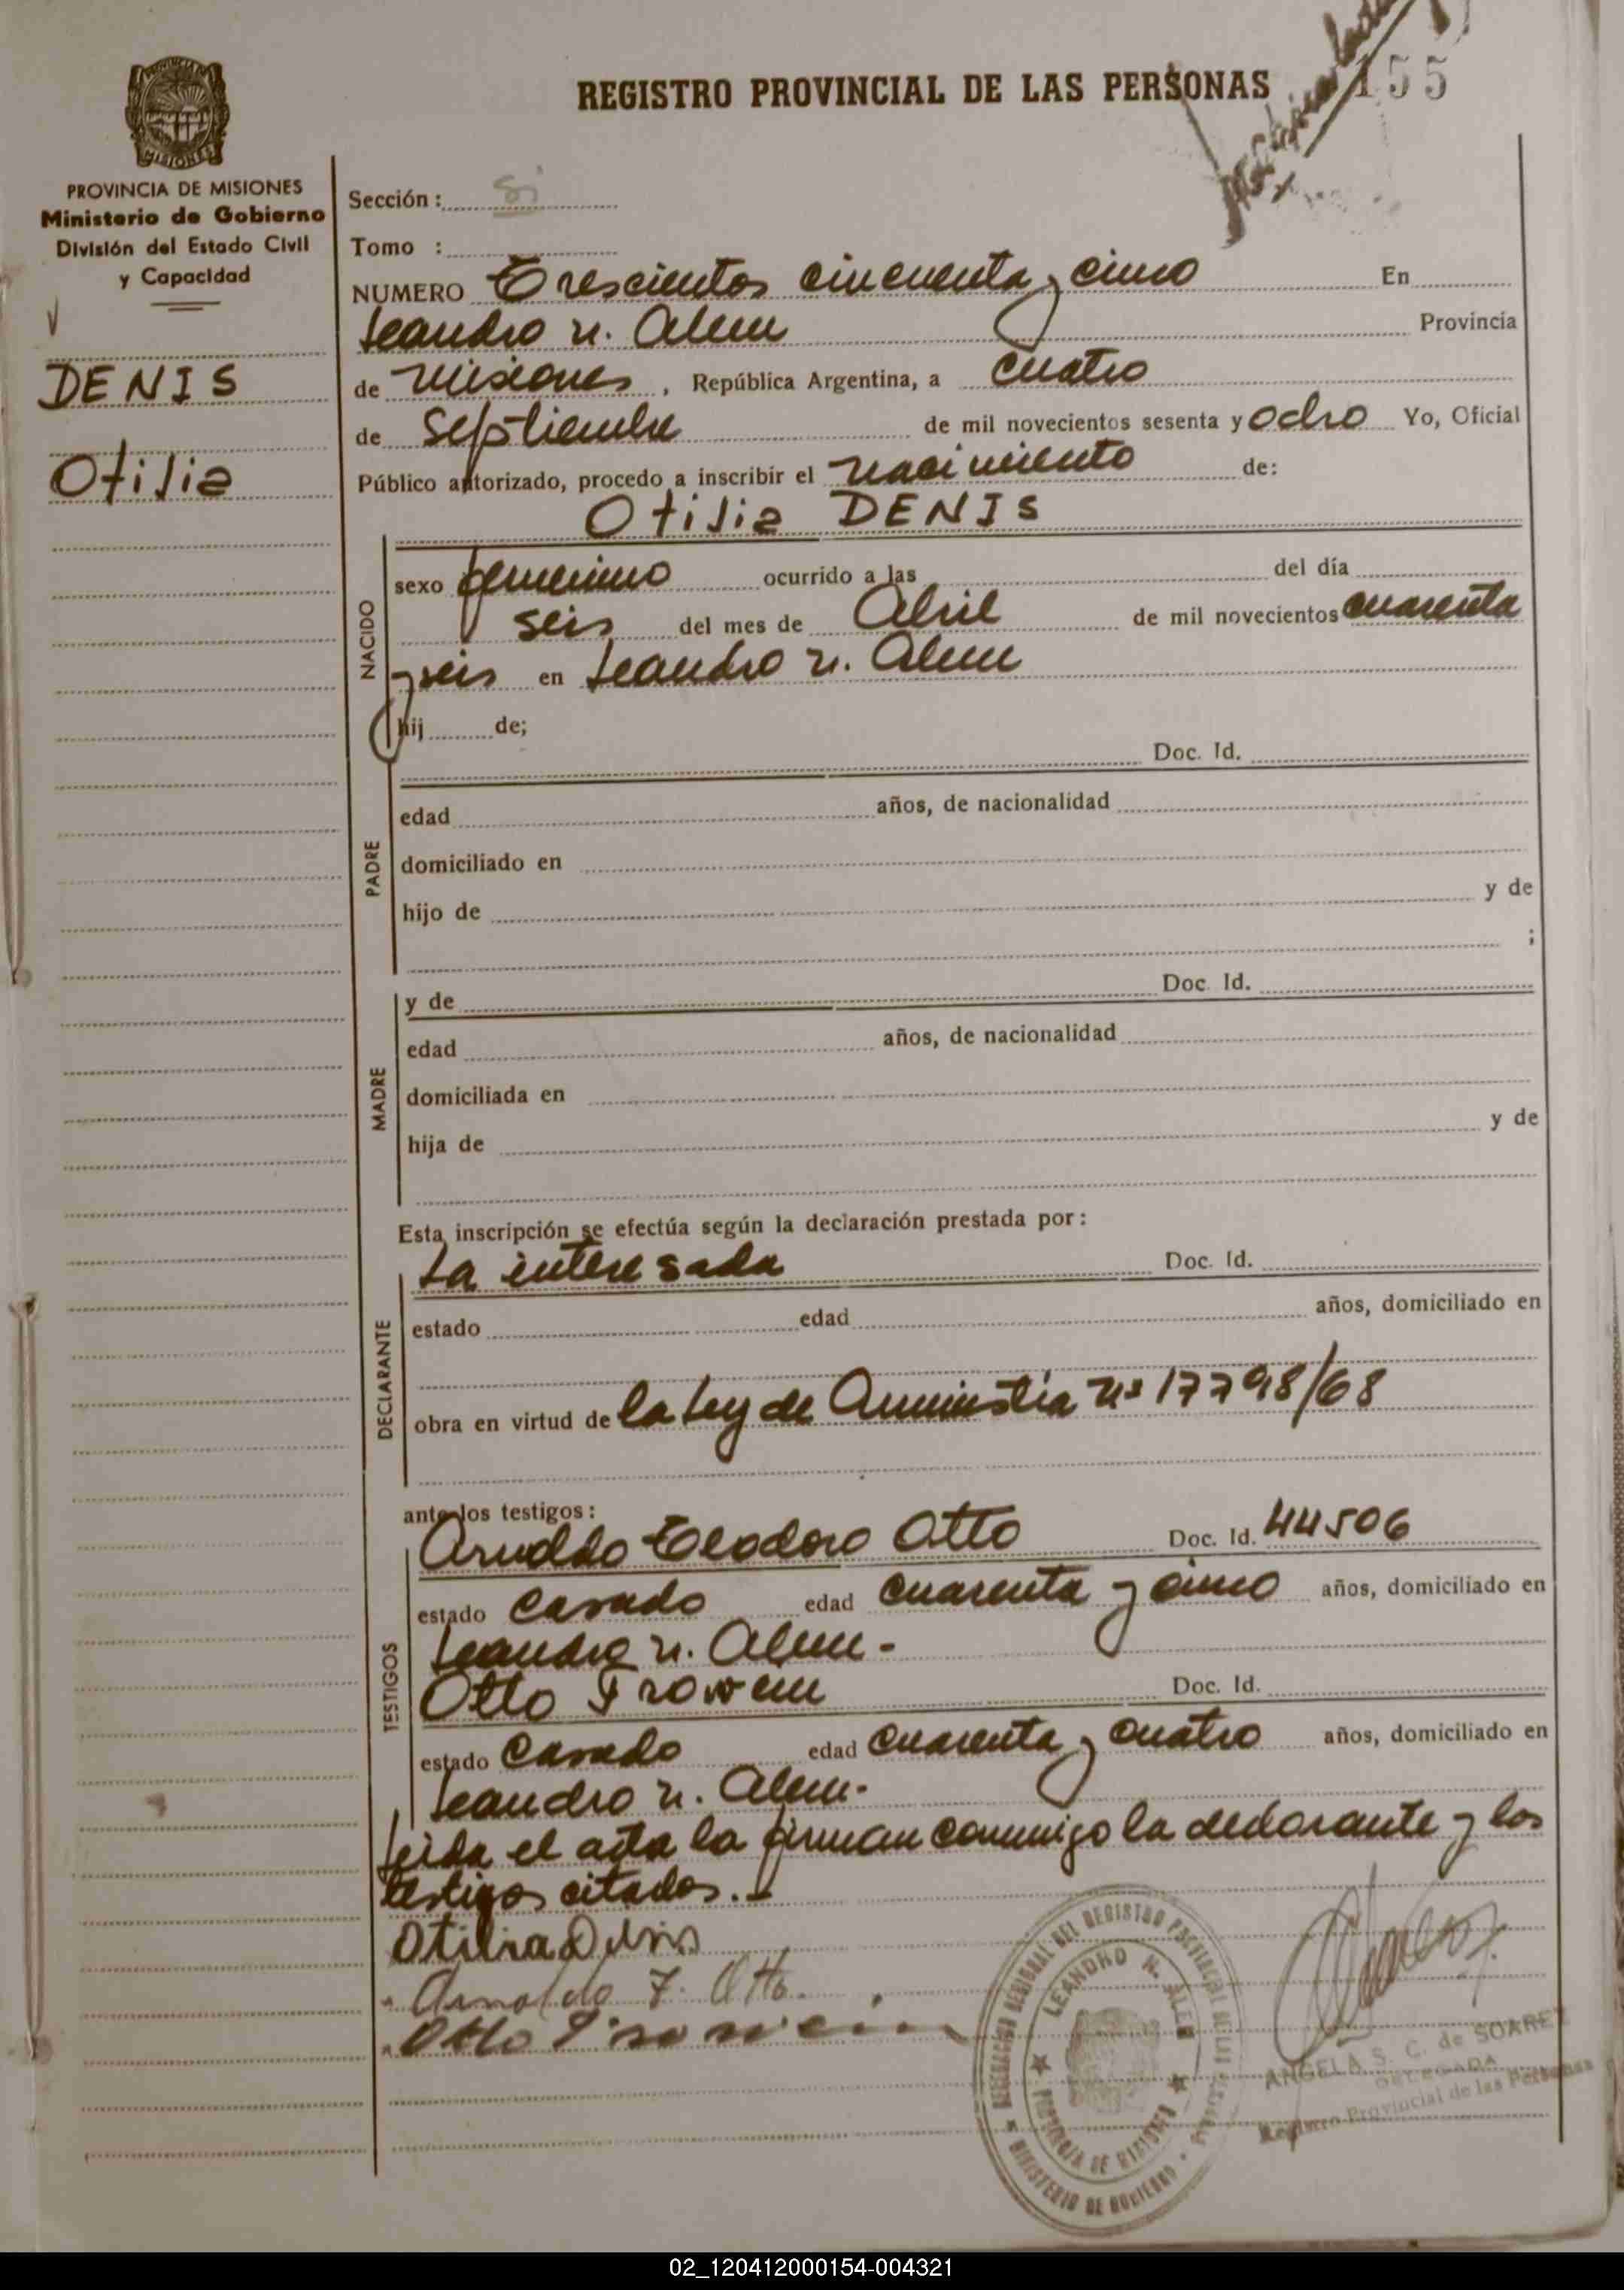 REGISTRO PROVINCIAL DE LAS PERSONAS
155
MISIONES
PROVINCIA DE MISIONES
Ministerio de Gobierno
División del Estado Civil
y Capacidad
DENIS
Otilia
Sección : si
Tomo :
NUMERO Trescientos cincuenta y cinco En
Leandro N. Alem Provincia
de Misiones, República Argentina, a cuatro
de septiembre de mil novecientos sesenta y ocho Yo, Oficial
Público autorizado, procedo a inscribir el nacimiento de:
Otilia DENIS
NACIDO
sexo femenino ocurrido a las del día
seis del mes de Abril de mil novecientos cuarenta
y seis en Leandro N. Alem
hij de;
Doc. Id.
PADRE
edad años, de nacionalidad
domiciliado en
hijo de y de
;
MADRE
y de Doc. Id.
edad años, de nacionalidad
domiciliada en
hija de y de
Esta inscripción se efectúa según la declaración prestada por :
DECLARANTE
La interesada Doc. Id.
estado edad años, domiciliado en
obra en virtud de la Ley de Amnistia Nº 17798/68
ante los testigos :
TESTIGOS
Arnoldo Teodoro Otto Doc. Id. 44506
estado casado edad cuarenta y cinco años, domiciliado en
Leandro N. Alem.-
Otto Prowein Doc. Id.
estado casado edad cuarenta y cuatro años, domiciliado en
Leandro N. Alem.-
Leida el acta la firman conmigo la declarante y los
testigos citados.-
Otilia Denis
Arnoldo T. Otto.
Otto
DELEGACION REGIONAL DEL REGISTRO PROVINCIAL DE LAS PERSONAS
LEANDRO N. ALEM
PROVINCIA DE MISIONES
MINISTERIO DE GOBIERNO
ANGELA S. C. de SOAREZ
DELEGADA
Registro Provincial de las Personas
02_120412000154-004321